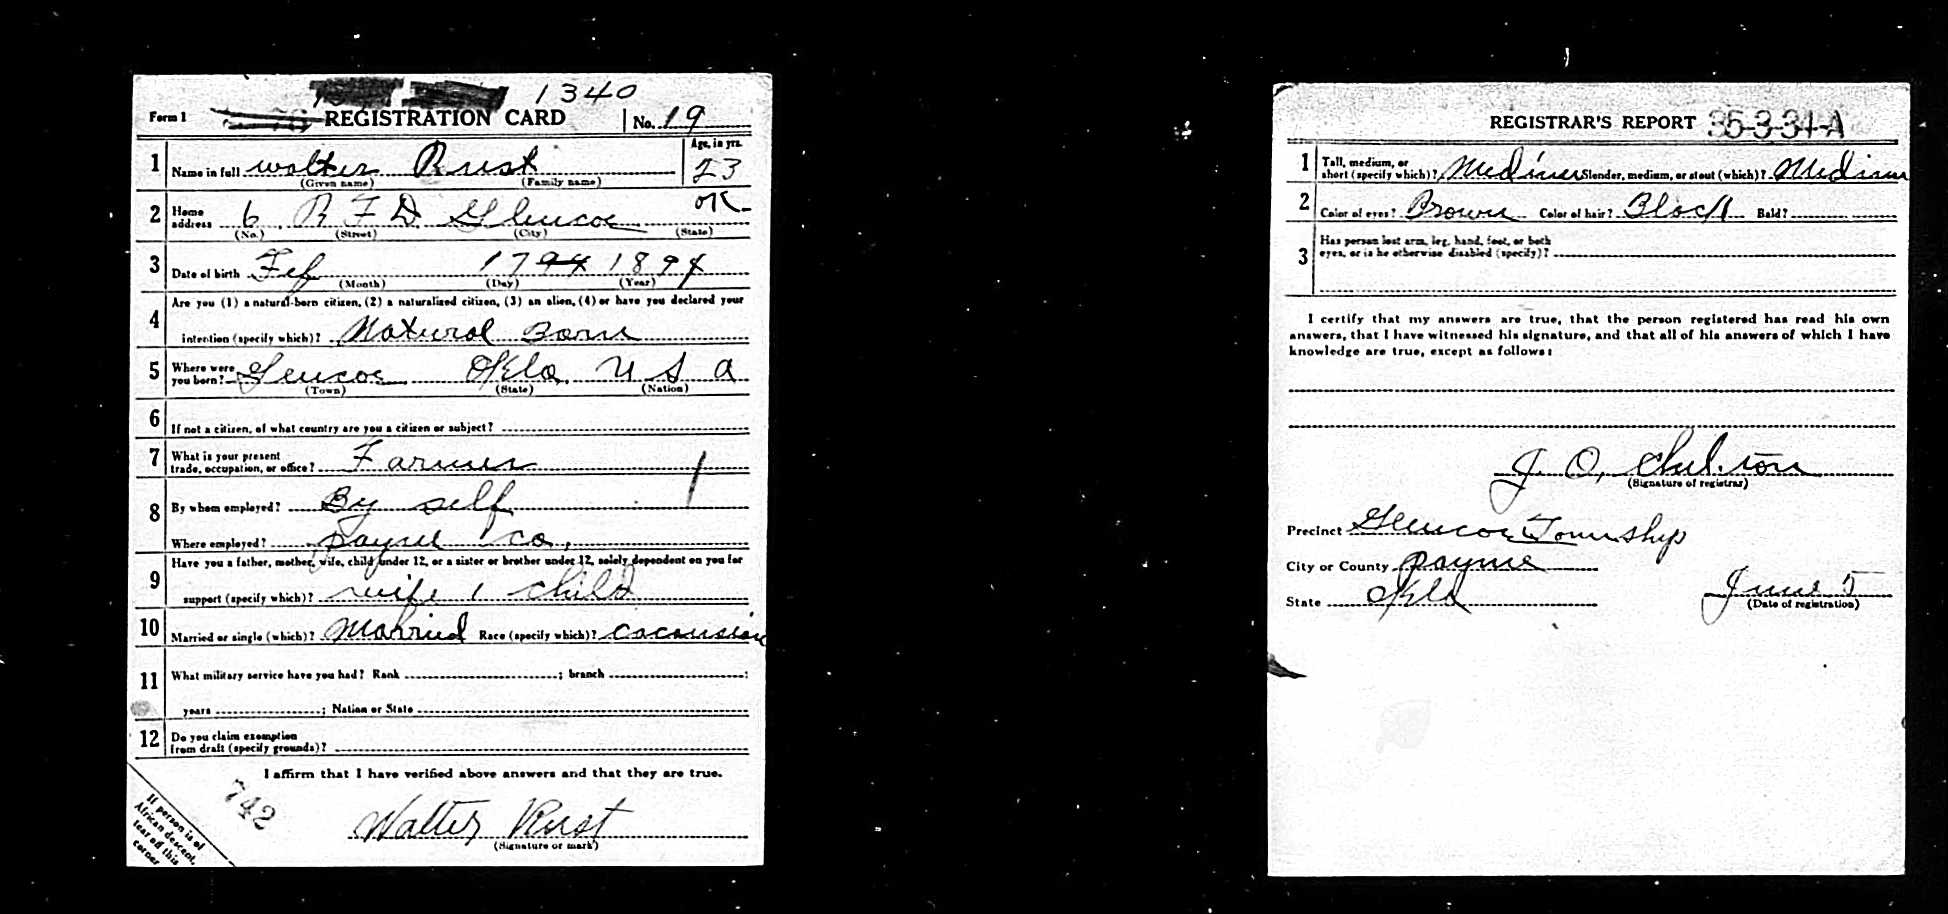 1340
Form 1 REGISTRATION CARD No. 19
1 Name in full Walter Rust Age, in yrs. 23
(Given name) (Family name)
2 Home address 6 R F D Glencoe OK
(No.) (Street) (City) (State)
3 Date of birth Feb 17 94 1894
(Month) (Day) (Year)
4 Are you (1) a natural-born citizen, (2) a naturalized citizen, (3) an alien, (4) or have you declared your
intention (specify which)? Natural Born
5 Where were you born? Glencoe Okla. U S A
(Town) (State) (Nation)
6 If not a citizen, of what country are you a citizen or subject?
7 What is your present trade, occupation, or office? Farmer
8 By whom employed? By self
Where employed? payne co,
9 Have you a father, mother, wife, child under 12, or a sister or brother under 12, solely dependent on you for
support (specify which)? wife 1 child
10 Married or single (which)? Married Race (specify which)? cacausian
11 What military service have you had? Rank ; branch ;
years ; Nation or State
12 Do you claim exemption
from draft (specify grounds)?
I affirm that I have verified above answers and that they are true.
742
Walter Rust
(Signature or mark)
If person is of
African descent,
tear off this
corner
REGISTRAR'S REPORT 35-3-31-A
1 Tall, medium, or short (specify which)? Medium Slender, medium, or stout (which)? Medium
2 Color of eyes? Brown Color of hair? Black Bald?
3 Has person lost arm, leg, hand, foot, or both
eyes, or is he otherwise disabled (specify)?
I certify that my answers are true, that the person registered has read his own
answers, that I have witnessed his signature, and that all of his answers of which I have
knowledge are true, except as follows:
J O, Chilton
(Signature of registrar)
Precinct Glencoe Township
City or County payne
State Okla June 5
(Date of registration)